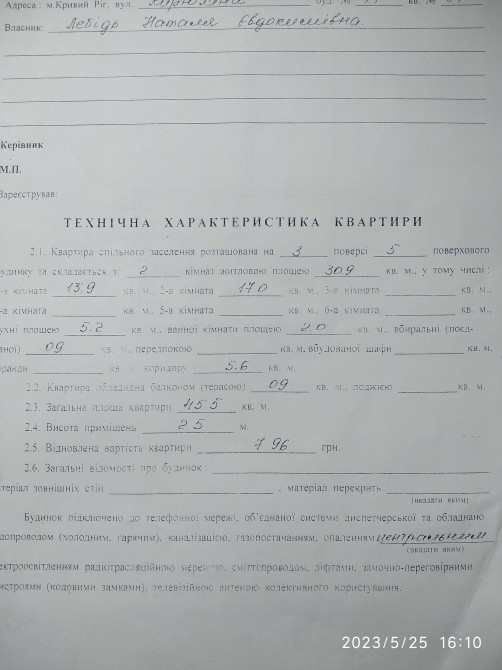 Адреса : м.Кривий Ріг, вул. буд. № кв. №
Власник: Лебідь Наталя Євдокимівна.
Керівник
М.П.
Зареєстрував:
ТЕХНІЧНА ХАРАКТЕРИСТИКА КВАРТИРИ
2.1. Квартира спільного заселення розташована на 3 поверсі 5 поверхового
будинку та складається з: 2 кімнат житловою площею 30,9 кв. м., у тому числі :
-а кімната 13,9 кв. м., 2-а кімната 17,0 кв. м., 3-я кімната кв. м.,
-а кімната кв. м., 5-а кімната кв. м., 6-а кімната кв. м.,
ухні площею 5.2 кв. м., ванної кімнати площею 2,0 кв. м., вбиральні (поєд-
аної) 09 кв. м., передпокою кв. м, вбудованої шафи кв. м.,
ранди кв. м. коридору 5.6 кв. м.
2.2. Квартира обладнана балконом (терасою) 09 кв. м., лоджією кв. м.
2.3. Загальна площа квартири 45.5 кв. м.
2.4. Висота приміщень 2,5 м.
2.5. Відновлена вартість квартири 796 грн.
2.6. Загальні відомості про будинок :
теріал зовнішніх стін , матеріал перекрить
(вказати яким)
Будинок підключено до телефонної мережі, об'єднаної системи диспетчерської та обладнано
допроводом (холодним, гарячим), каналізацією, газопостачанням, опаленням центральним
(вказати яким)
ектроосвітленням радіотрасляційною мережею, сміттєпроводом, ліфтами, замочно-переговорними
истроями (кодовими замками), телевізійною антеною колективного користування.
2023/5/25 16:10